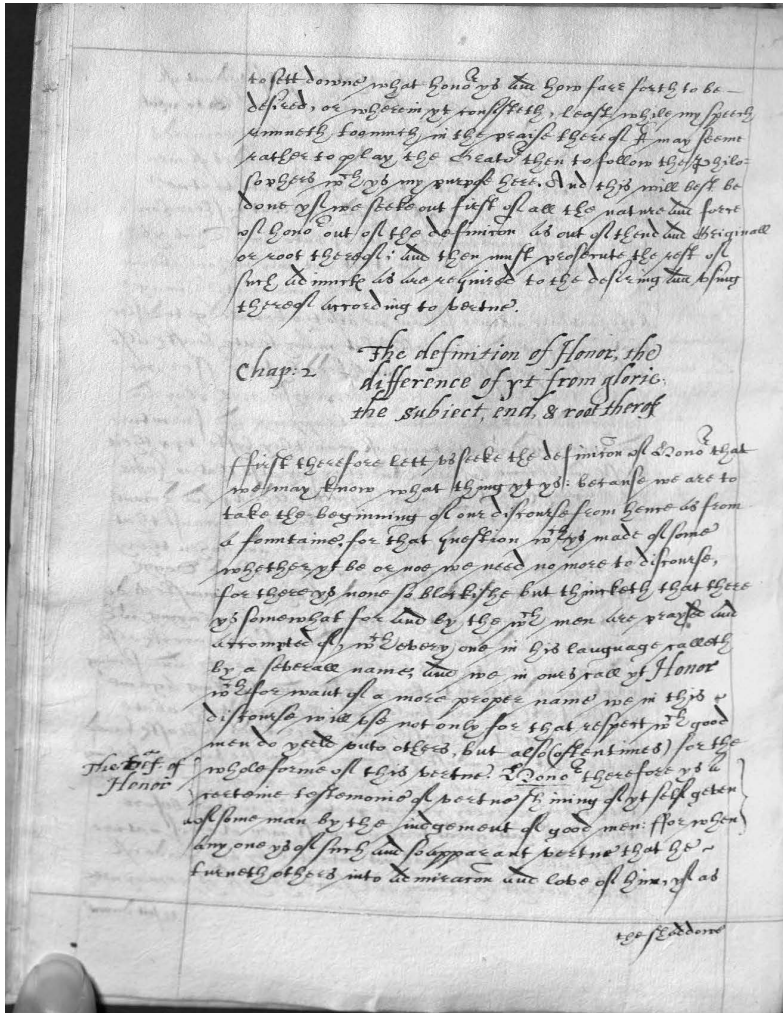 to sett downe what hono^r ys and how farr forth to be –
desired, or wherein yt consisteth, least while my speech
runneth too much in the praise thereof I may seeme
rather to play the Orato^r then to follow the Philo-
sophers w^ch ys my purpose here. And this will best be
done yf we seeke out first of all the nature and force
of hono^r out of the definicōn as out of thend and Originall
or root thereof: and then must prosecute the rest of
such adiuncts as are required to the desiring and vsing
thereof according to vertue.
Chap: 2 The definition of Honor, the
difference of yt from glorie,
the subiect, end, & root therof
ffirst therefore lett vs seeke the definicōn of Hono^r that
we may know what thing yt ys: because we are to
take the beginning of our discourse from hence as from
a fountaine, for that question w^ch ys made of some
whether yt be or noe we need no more to discourse,
for there ys none so blockishe but thincketh that there
ys somewhat for and by the w^ch men are praysed and
accompted of, w^ch every one in his language calleth
by a severall name, and we in ours call yt Honor
w^ch for want of a more proper name we in this
discourse will vse not only for that respect w^ch good
men do yeeld vnto others, but also (oftentimes) for the
The of
Honor
whole forme of this vertue. Hono^r therefore ys a
certeine testemonie of vertue shining of yt self geven
of some man by the iudgement of good men: ffor when
any one ys of such and so apparant vertue that he
turneth others into admiracōn and love of him, yf as
the shaddowe